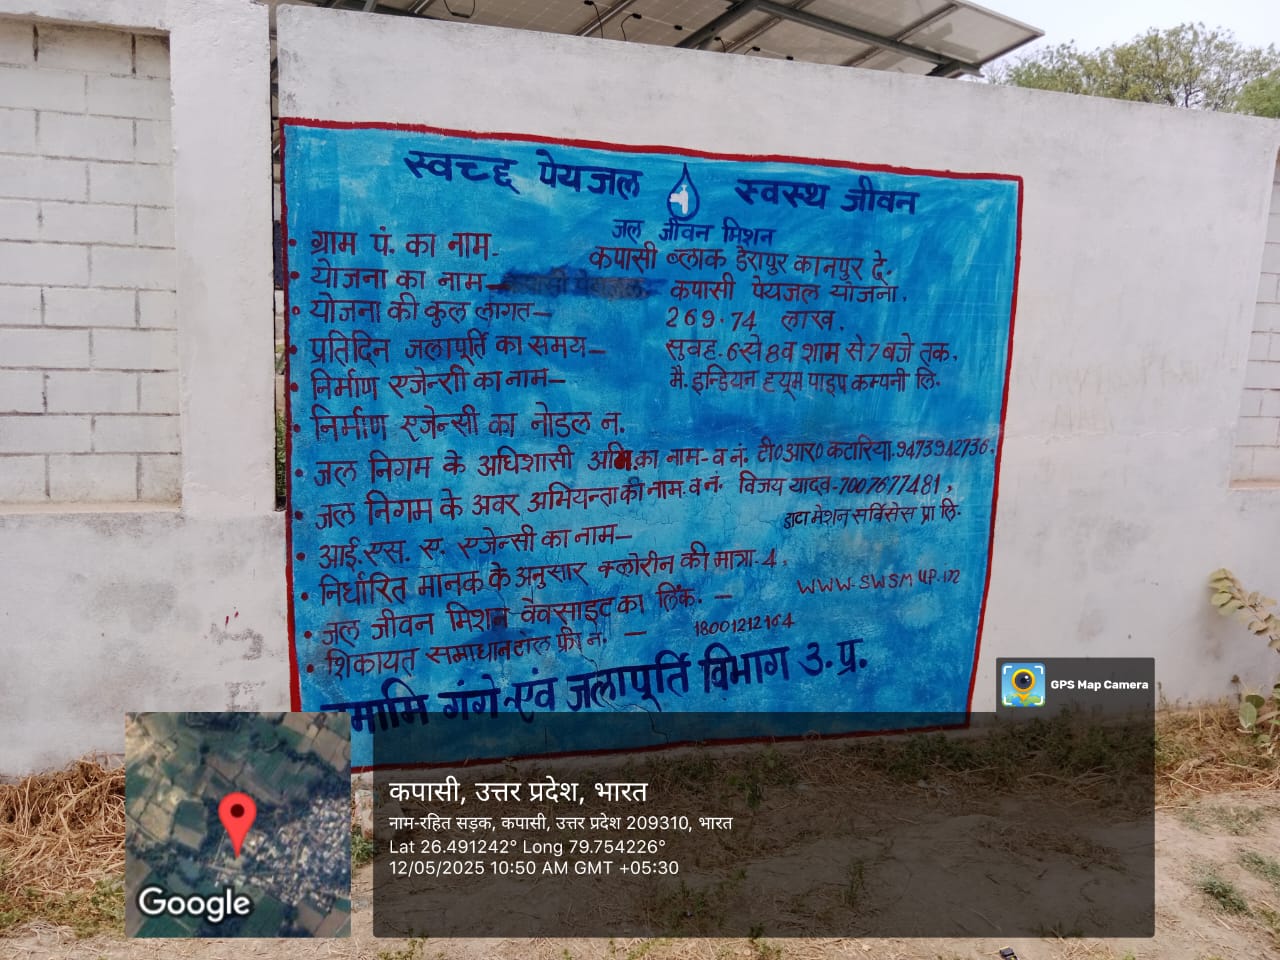 स्वच्छ पेयजल स्वस्थ जीवन
जल जीवन मिशन
• ग्राम पं. का नाम- कपासी ब्लाक डेरापुर कानपुर दे.
• योजना का नाम- कपासी पेयजल योजना.
• योजना की कुल लागत- 269.74 लाख.
• प्रतिदिन जलापूर्ति का समय- सुवह. 6 से 8 व शाम से 7 बजे तक.
• निर्माण एजेन्सी का नाम- मै. इन्डियन ह्यूम पाइप कम्पनी लि.
• निर्माण एजेन्सी का नोडल न.
• जल निगम के अधिशासी अभि.का नाम- व नं. टी०आर० कटारिया.9473942736.
• जल निगम के अवर अभियन्ता की नाम. व नं. विजय यादव-7007677481,
• आई.एस. ए. एजेन्सी का नाम- डाटा मेशन सर्विसेस प्रा लि.
• निर्धारित मानक के अनुसार क्लोरीन की मात्रा-4.
• जल जीवन मिशन वेवसाइट का लिंक. - WWW.SWSM UP.in
• शिकायत समाधान टोल फ्री नं. - 18001212164
नमामि गंगे एंव जलापूर्ति विभाग उ.प्र.
GPS Map Camera
कपासी, उत्तर प्रदेश, भारत
नाम-रहित सड़क, कपासी, उत्तर प्रदेश 209310, भारत
Lat 26.491242° Long 79.754226°
12/05/2025 10:50 AM GMT +05:30
Google